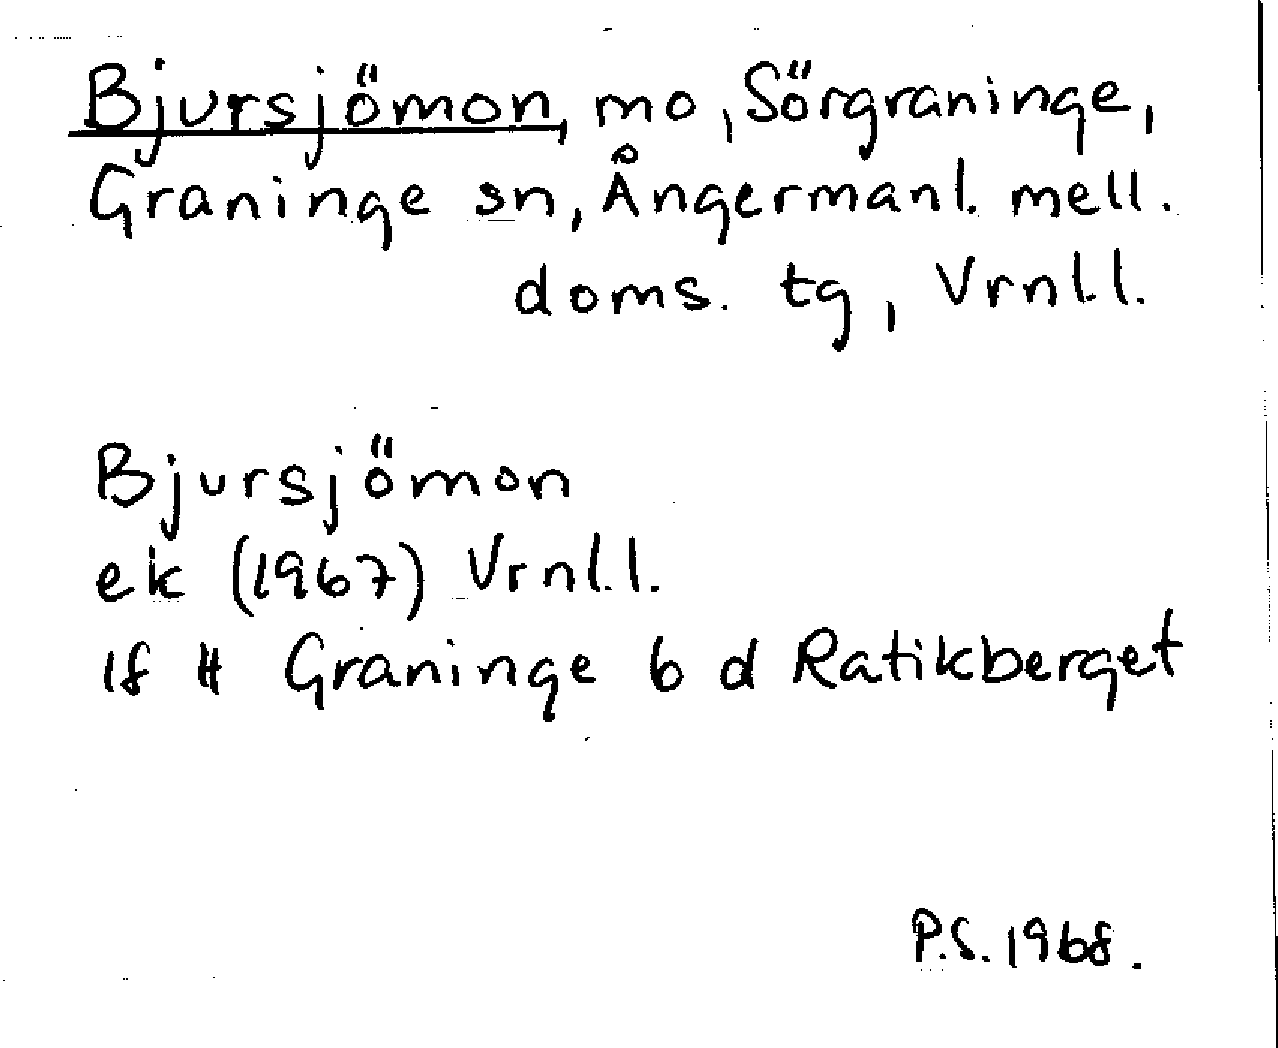 Bjursjömon, mo, Sörgraninge,
Graninge sn, Ångermanl. mell.
doms. tg, Vrnl.l.
Bjursjömon
ek (1967) Vrnl.l.
lf # Graninge b d Ratikberget
P.S. 1968.